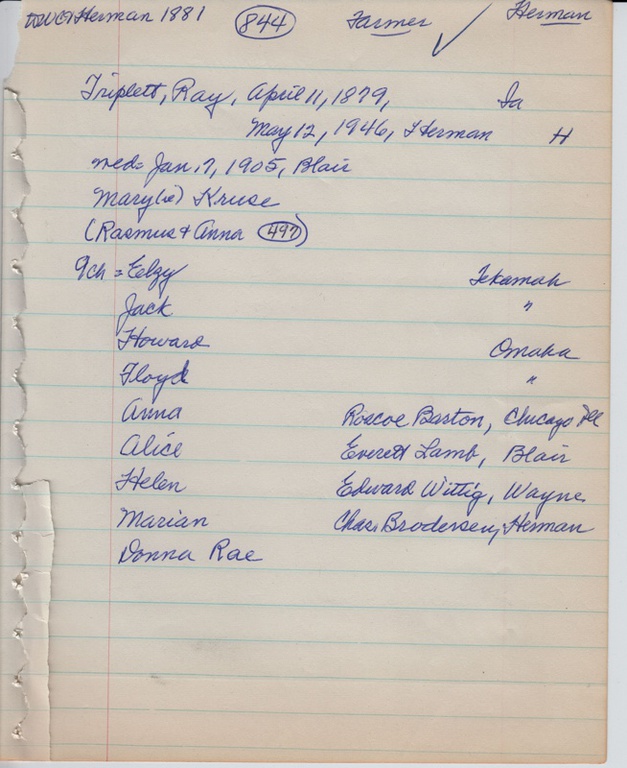 Herman 1881 844 Farmer ✓ Herman
Triplett, Ray, April 11, 1879, Ia
May 12, 1946, Herman H
med= Jan. 7, 1905, Blair
Mary Kruse
(Rasmus & Anna 497)
9ch = Eelzy Tekamah
Jack "
Howard Omaha
Floyd "
Anna Roscoe Barton, Chicago Ill
Alice Everett Lamb, Blair
Helen Edward Wittig, Wayne
Marian Chas. Brodersen, Herman
Donna Rae